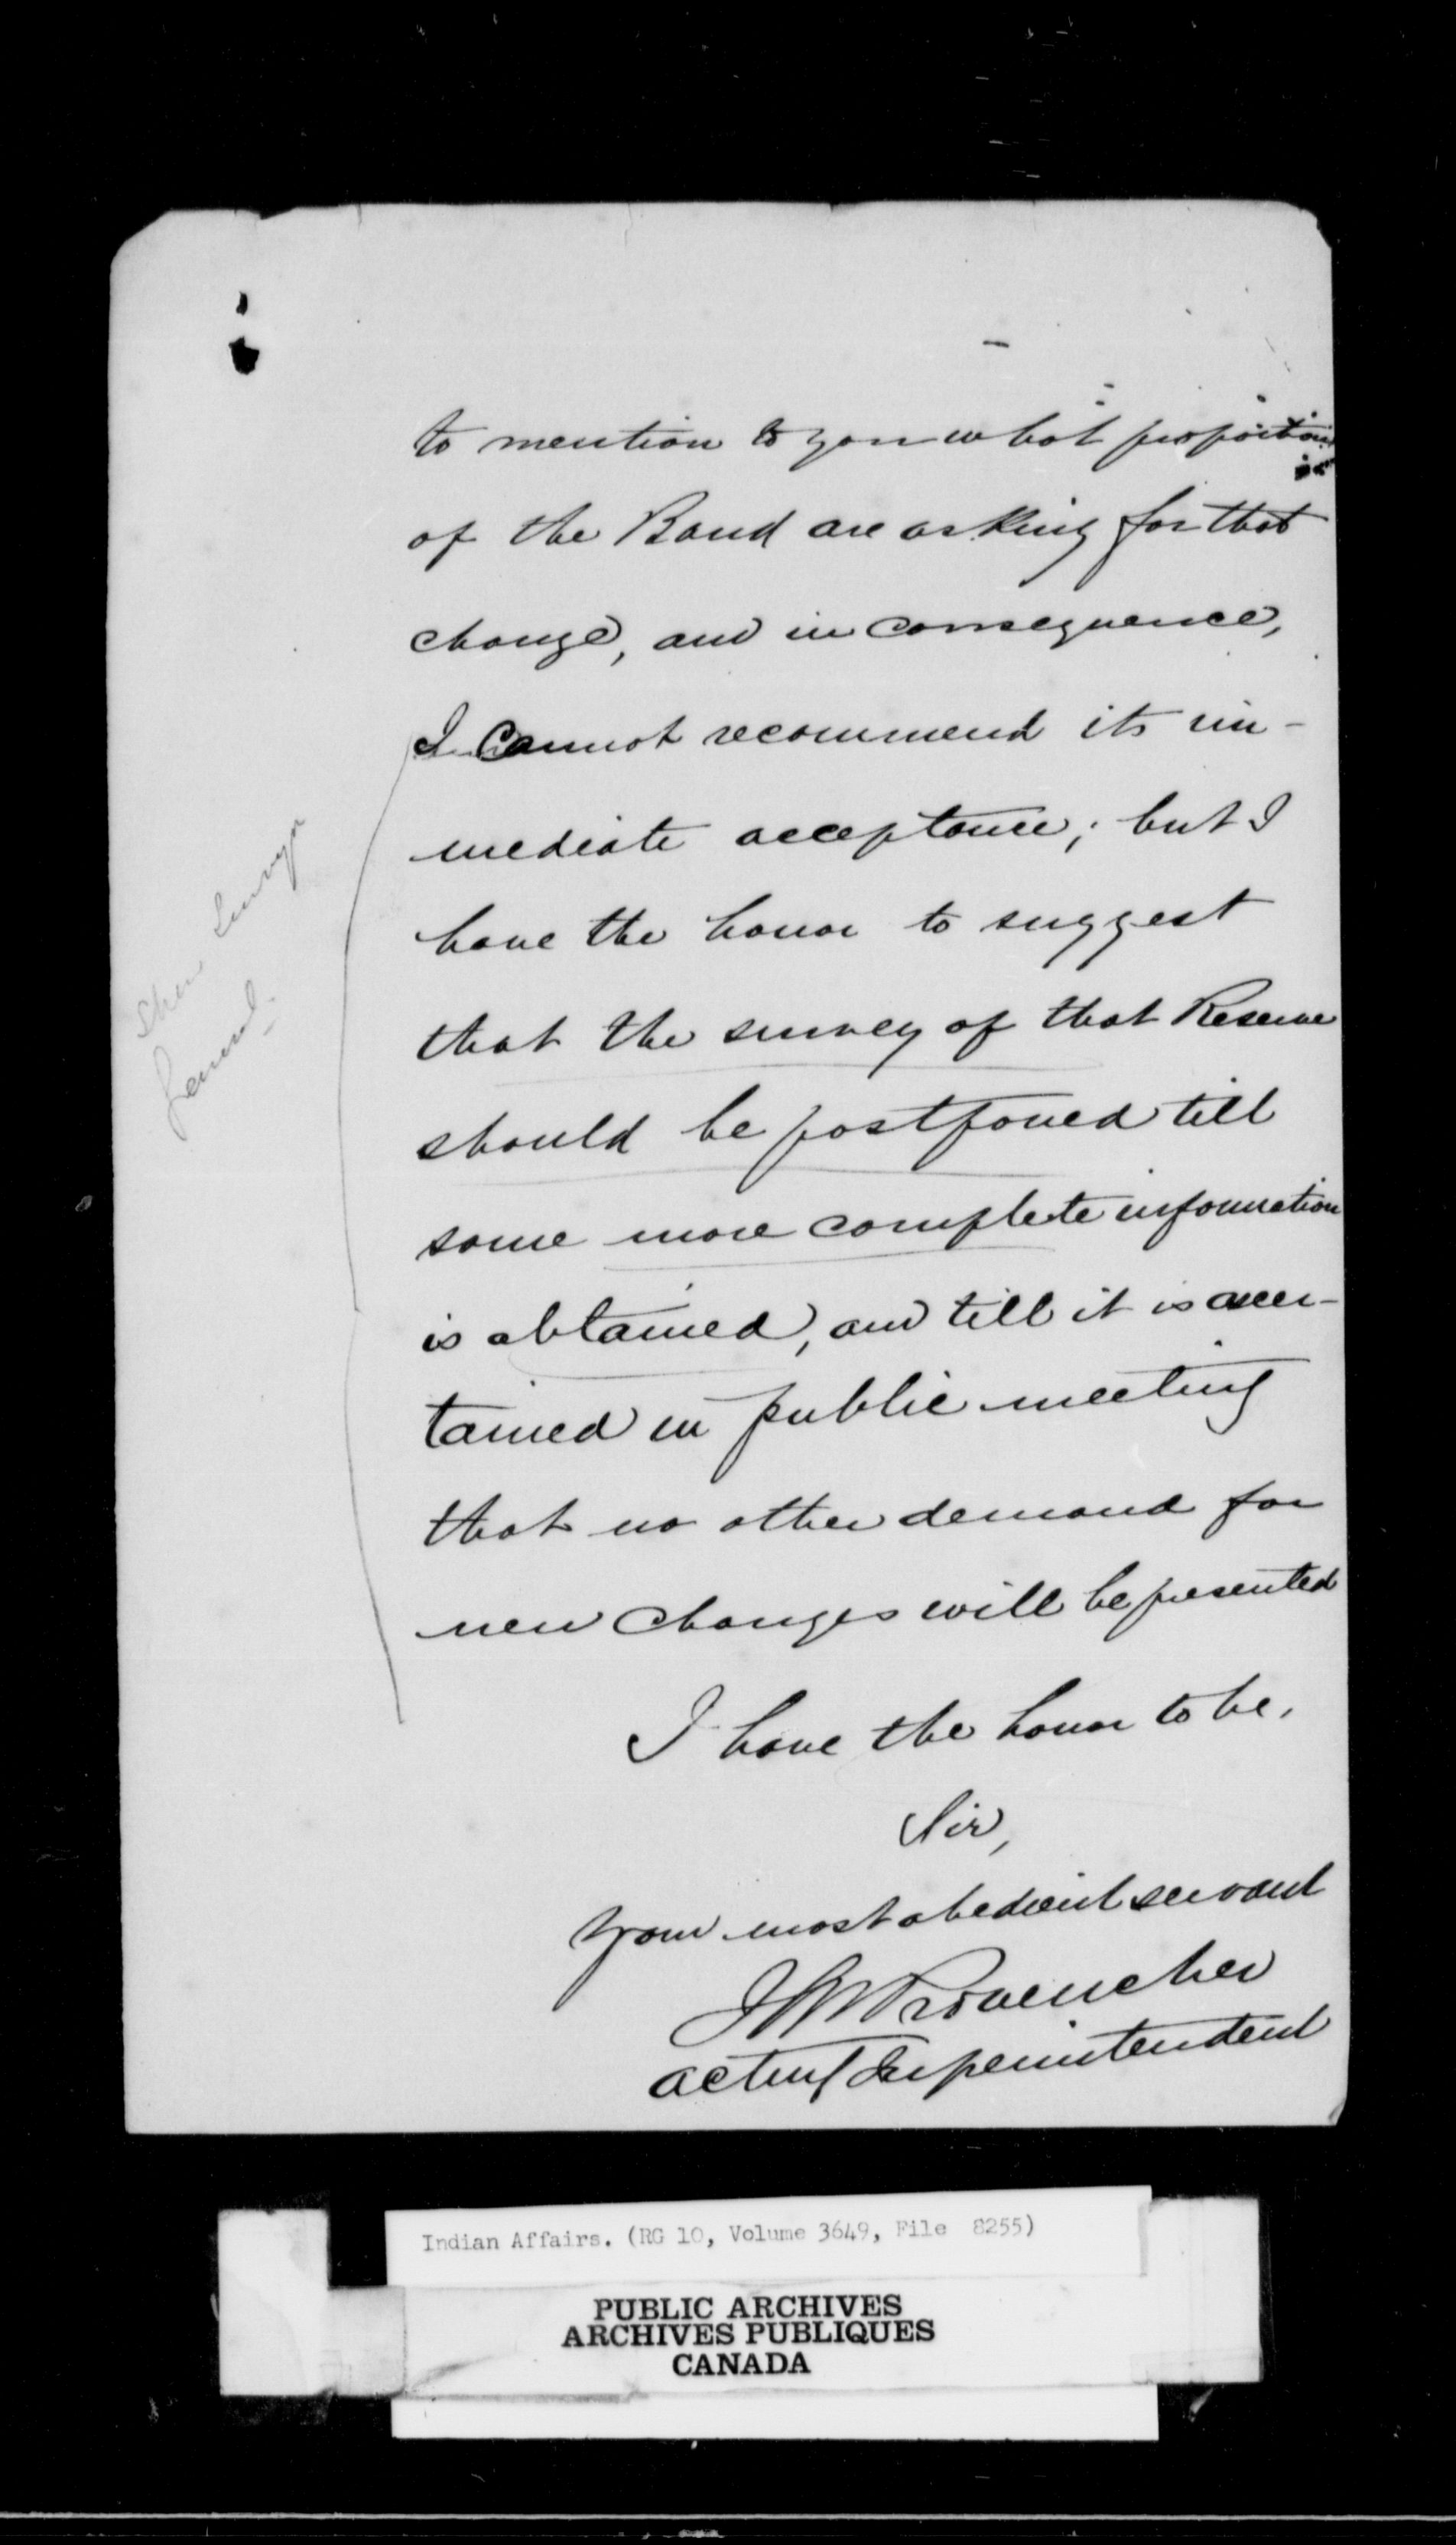 to mention to you what proportion
of the Band are asking for that
change, and in consequence,
I cannot recommend its im-
mediate acceptance; but I
have the honor to suggest
that the survey of that Reserve
should be postponed till
some more complete information
is obtained, and till it is ascer-
tained in public meeting
that no other demand for
new changes will be presented
I have the honor to be,
Sir,
Your most obedient servant
J A N Provencher
Acting Superintendent
Indian Affairs. (RG 10, Volume 3649, File 8255)
PUBLIC ARCHIVES
ARCHIVES PUBLIQUES
CANADA